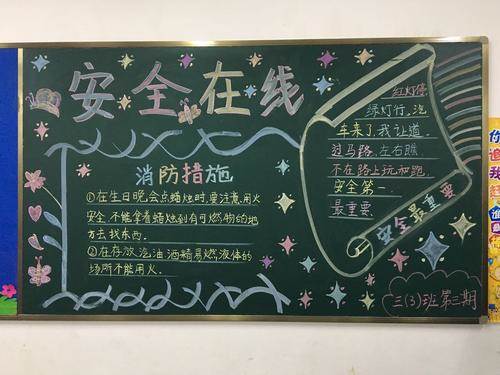 安全在线
消防措施
①在生日晚会点蜡烛时,要注意用火
安全,不能拿着蜡烛到有可燃物的地
方去找东西.
②在存放汽油,酒精易燃液体的
场所不能用火.
红灯停
绿灯行,汽
车来了,我让道.
过马路,左右瞧.
不在路上玩和跑.
安全第一
最重要.
安全最重要
三(3)班第三期
你
我